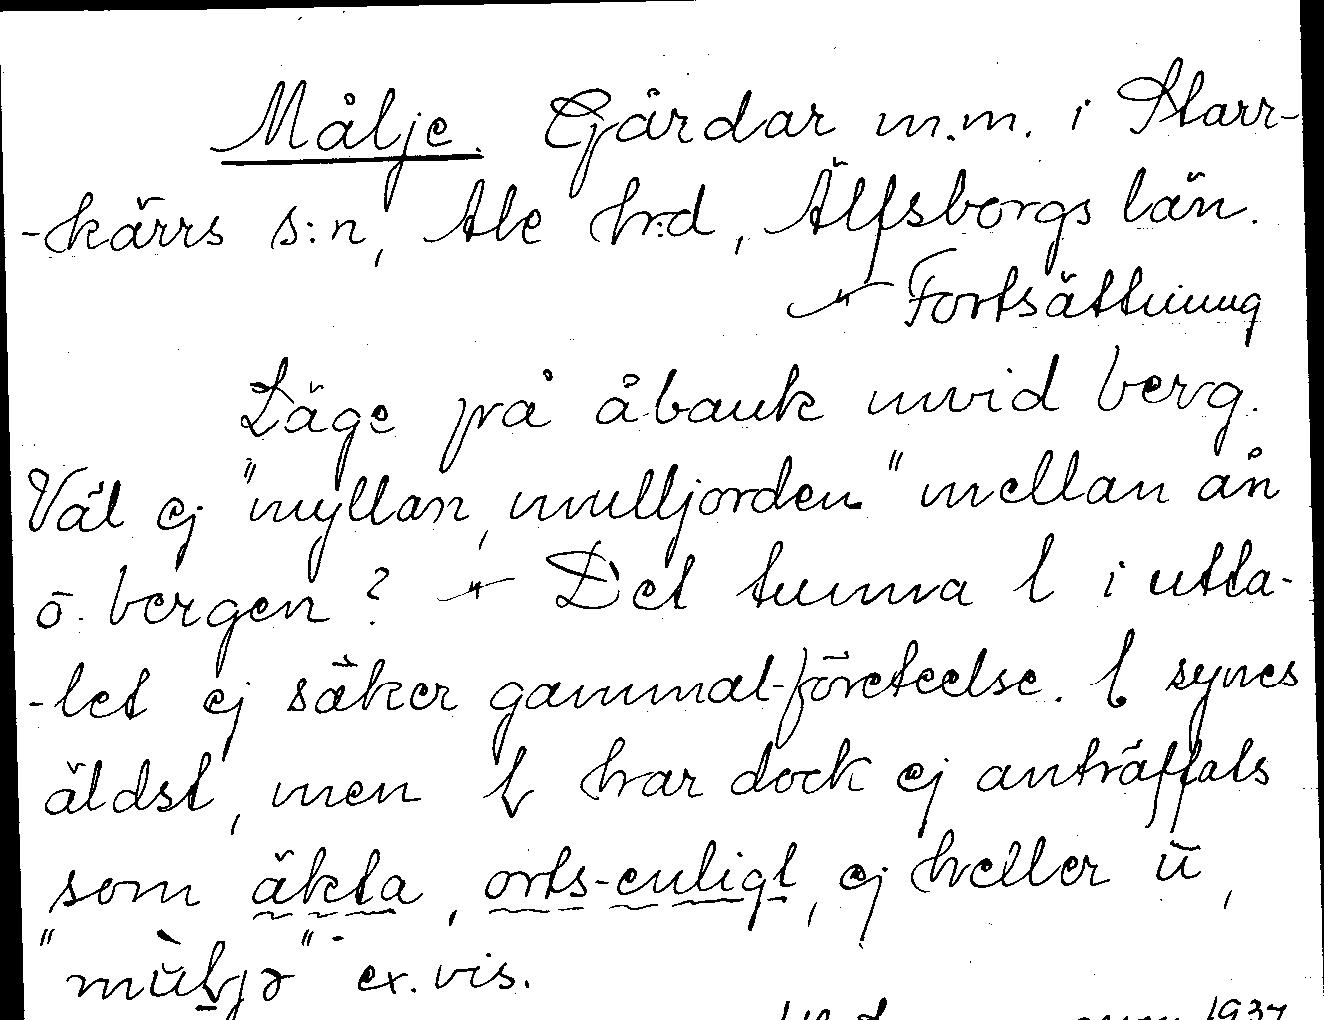 Målje. Gårdar m.m. i Starr-
-kärrs s:n, Ale h:d, Älfsborgs län.
Fortsättning
Läge på åbank invid berg.
Väl ej "myllan, mulljorden" mellan ån
o. bergen? Det tunna l i utta-
-let ej säker gammal-företeelse. ɫ synes
äldst, men ɫ har dock ej anträffats
som äkta, orts-enligt, ej heller ŭ,
"mŭ̀ɫjə" ex.vis.
1937